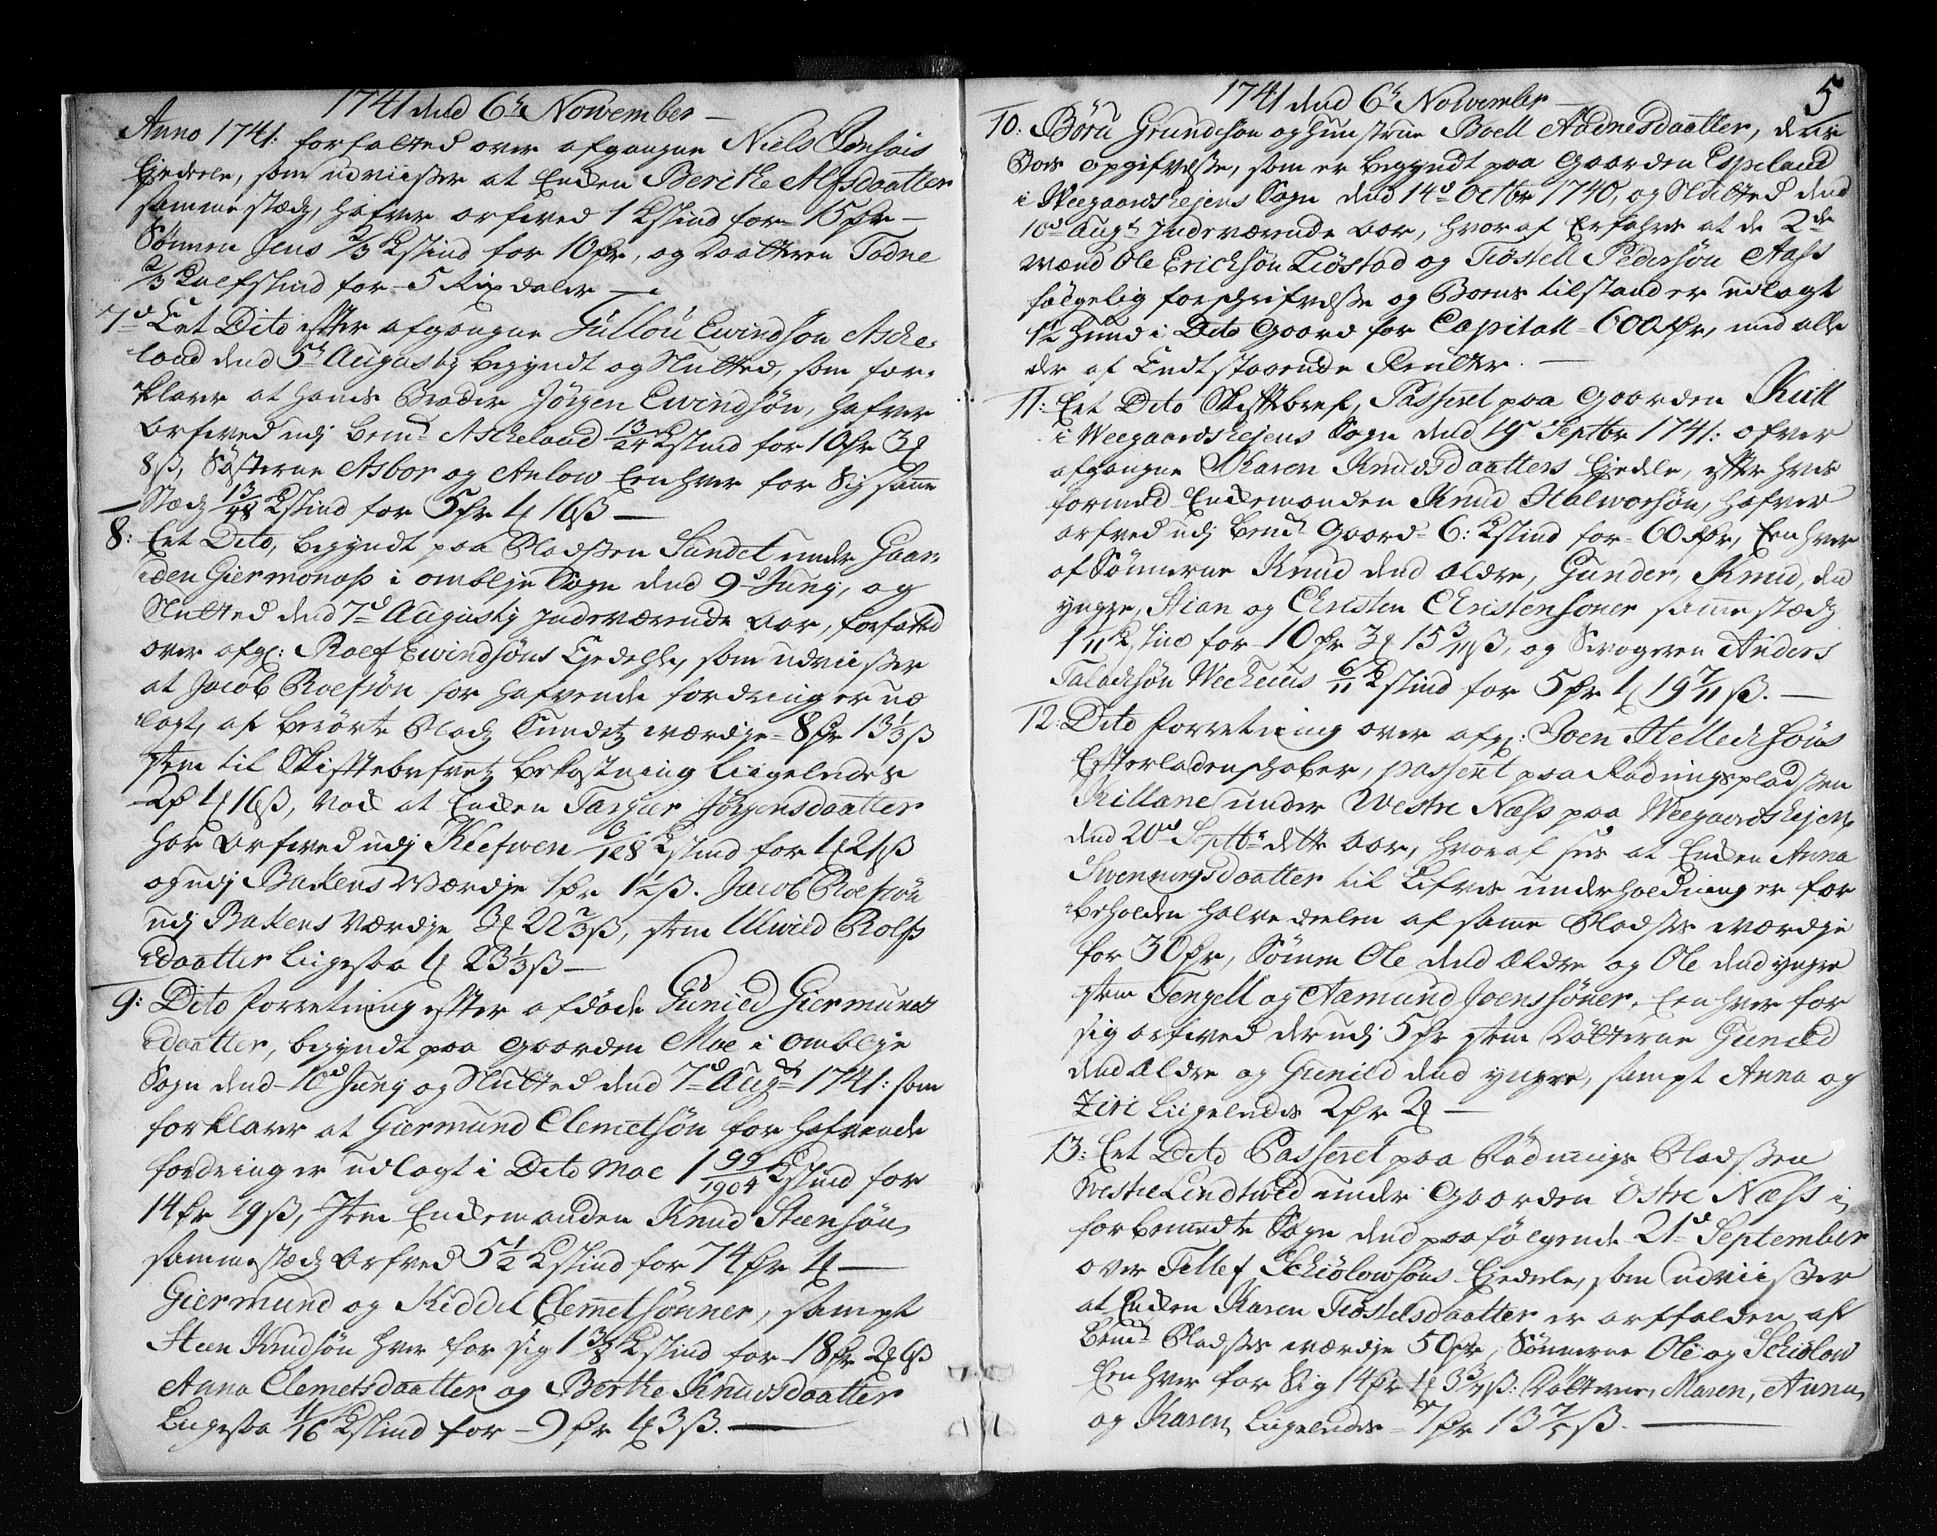 1741 dend 6t Nowember
Anno 1741: forfatted over afgangne Niels Jensøns
Ejedeele, som udviisser at Encken Berthe Alfsdaatter
samme stædz, hafver arfved 1 Kstind for 15 Rdr
Sønnen Jens 2/3 Kstind for 10 Rdr, og Daatteren Todne
2/3 Kalfstind for 5 Rixdaler
7d Eet Dito efter afgangne Gullou Ewindsøn Aske-
land dend 5t Augusty begyndt og Slutted, som for-
klarer at hands Broder Jørgen Ewindsøn, hafver
arfved udj bemt Askeland 13/24 Kstind for 10 Rdr 3
8 ß, Søsterne Asbor og Anlow Een hver for Sig samme
Stædz 13/48 Kstind for 5 Rdr 16 ß
8: Eet Dito, begyndt paa Pladssen Sundet under Gaar-
den Giermonass i omblje Sogn dend 9d Juny, og
Slutted dend 7d Augusty Indeværende aar, forfatted
over afgl: Roef Ewindsøns Ejedehle, som udviisser
at Jacob Roefsøn for hafvende fordring er ud
lagt, af berørte Pladz Sundetz værdje 8 Rdr 13 1/3 ß
item til Skifftebrefvetz bekostning liigeledes
2 Rdr 16 ß, Ved at Encken Targier Jørgensdaatter
har arfved udj Klefwen 3/128 Kstind for 21 ß
og udj Bakens Værdje 1 Rdr 1 1/2 ß. Jacob Roefsøn
udj Bakens Værdje 22 2/3 ß, item Ulwild Rolfs
daatter liigesaa 23 1/3 ß
9: Dito forretning efter afdøde Gunild Giermunds
daatter, begyndt paa Gaarden Moe i omblje
Sogn dend 10d Juny og Slutted dend 7d Augst 1741: som
forklarer at Giermund Clemetsøn for hafvende
fordring er udlagt i Dito Moe 1 99/1904 Kstind for
14 Rdr 19 ß, Item Enckemanden Knud Steensøn
sammestædz arfved 5 1/2 Kstind for 74 Rdr
Giermund og Kiddel Clemetsønner, sampt
Steen Knudsøn hver for sig 1 3/8 Kstind for 18 Rdr 2 6 ß
Anna Clemetsdaatter og Berthe Knudsdaatter
Liigesaa 11/16 Kstind for 9 Rdr 3 ß.
1741 dend 6t Nowember
5
10: Børu Grundesøn og Hustrue Boell Aadnesdaatter, deris
Boes opgifvelsse, som er begyndt paa Gaarden Espeland
i Weegaardshejens Sogn dend 14d Octbr 1740, og Slutted dend
10d Augst Indeværende aar, hvoraf Erfahres at de 2de
Mænd Ole Ericksøn Liøstad og Tiøstell Pedersøn Aass
følgelig forschrifvelsse og Boens tilstand er udlagt
1 1/2 Hund i Dito Gaard for Capitall 600 Rdr, med alle
der af Endtstaaende Renter.
11: Eet Dito Skifftbref, Passeret paa Gaarden Kiill
i Weegaardshejens Sogn dend 19d Septbr 1741: ofver
afgangne Karen Knudsdaatters Ejedele, efter hves
formeld Enckemanden Knud Halworsøn, hafver
arfved udj bemt Gaard 6: Kstind for 60 Rdr, Een hver
af Sønnerne Knud dend ældre, Gunder, Knud, dend
yngre, Stian og Christen Christensøner samme stædz
1 1/11 Kstind for 10 Rdr 3 15 3/11 ß, og Svogeren Anders
Taladsøn 6/11 Kstind for 5 Rdr 1 19 7/11 ß.
12: Dito forretning over afgl: Joen Stelleckhsøns
Efterladenschaber, passeret paa Rødningspladssen
Killane under Westre Næss paa Weegaardshejen
dend 20d Septbr dette aar, hvoraf sees at Encken Anna
Swenningsdaatter til Lifves underholdning er for
beholden halve deelen af samme Pladses værdje
for 30 Rdr, Sønnen Ole dend ældre og Ole dend yngre
item Tengell og Aamund Joenssøner, Een hver for
sig arfved derudj 5 Rdr item Døtterne Gunild
dend ældre og Gunild dend yngre, sampt Anna og
Ziri Liigeledes 2 Rdr 2
13: Eet Dito Passeret paa Rødnings Pladssen
Westre Lindtwed under Gaarden Østre Næss i
forbemeldte Sogn dend paafølgende 21d September
over Tellef Schiølowsøns Ejedele, som udviisser
at Encken Karen Tiøstelsdaatter er arffalden af
bemt Pladses værdje 50 Rdr, Sønnerne Ole og Schiølow
Een hver for Sig 14 Rdr 1 3 3/7 ß: Døtterne, Maren, Anna,
og Karen, Liigeledes 7 Rdr 13 5/7 ß.